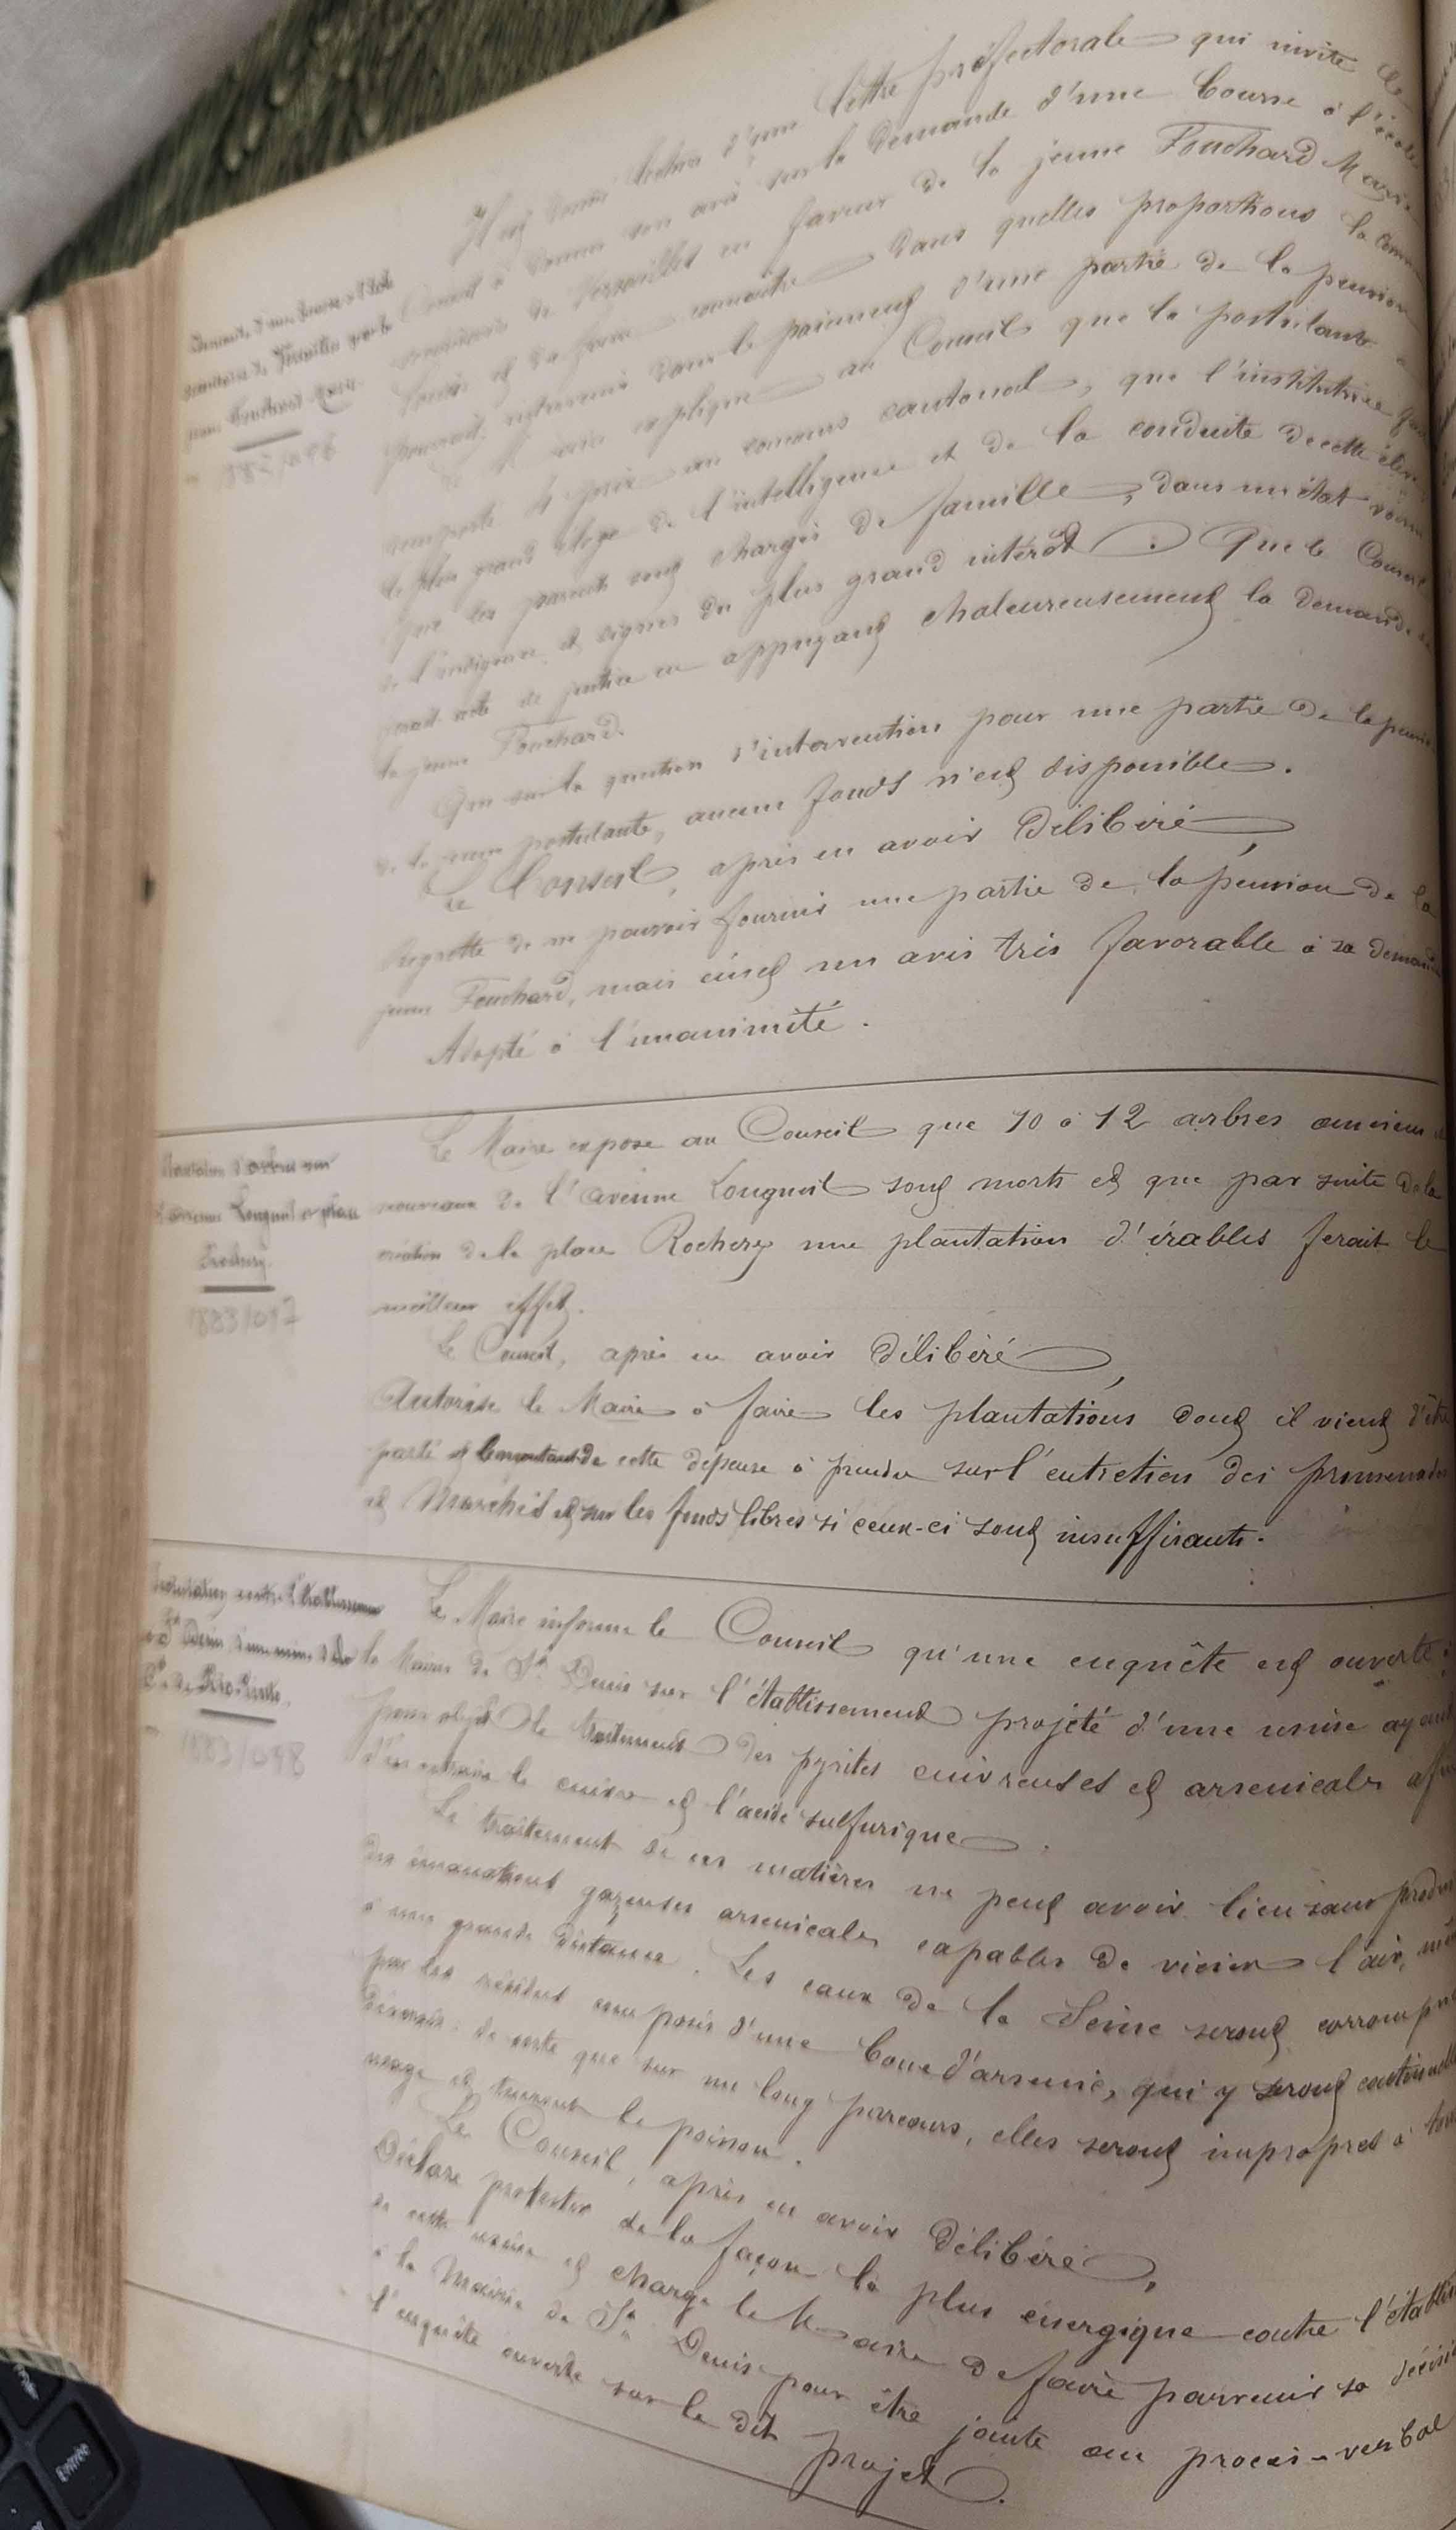 Il est donné lecture d'une lettre préfectorale qui invite le
Conseil à donner son avis sur la demande d'une bourse à l'école
de Versailles en faveur de la jeune Fouchard Marie
et à faire connaître dans quelles proportions la
pourrait intervenir dans le paiement d'une partie de la pension
Le Maire explique au Conseil que la postulante a
remporté le prix au concours cantonal, que l'institutrice fait
le plus grand éloge de l'intelligence et de la conduite de cette élève
Que les parents sont chargés de famille, dans un état voisin
de l'indigence et dignes du plus grand intérêt. Que le Conseil
ferait acte de justice en appuyant chaleureusement la demande de
la jeune Fouchard.
Que sur la question d'intervention pour une partie de la pension
de la jeune postulante, aucun fonds n'est disponible.
Le Conseil, après en avoir délibéré,
Regrette de ne pouvoir fournir une partie de la pension de la
jeune Fouchard, mais émet un avis très favorable à sa demande
Adopté à l'unanimité.
Plantation d'arbres sur
l'avenue Longueil et place
Rochery
1883/097
Le Maire expose au Conseil que 10 à 12 arbres anciens et
nouveaux de l'avenue Longueil sont morts et que par suite de la
création de la place Rochery une plantation d'érables ferait le
meilleur effet.
Le Conseil, après en avoir délibéré,
Autorise le Maire à faire les plantations dont il vient d'être
parlé et le montant de cette dépense à prendre sur l'entretien des promenades
et Marchés et sur les fonds libres si ceux-ci sont insuffisants.
Protestation contre l'établissement
à St Denis d'une usine de la
Cie de Rio-Tinto.
1883/098
Le Maire informe le Conseil qu'une enquête est ouverte à
la Mairie de St Denis sur l'établissement projeté d'une usine ayant
pour objet le traitement des pyrites cuivreuses et arsenicales afin
d'en extraire le cuivre et l'acide sulfurique.
Le traitement de ces matières ne peut avoir lieu sans produire
des émanations gazeuses arsenicales capables de vicier l'air, même
à une grande distance. Les eaux de la Seine seront corrompues
par les résidus composés d'une boue d'arsenic, qui y seront continuellement
déversés de sorte que sur un long parcours, elles seront impropres à tout
usage et tueront le poisson.
Le Conseil, après en avoir délibéré,
Déclare protester de la façon la plus énergique contre l'établissement
de cette usine et charge le Maire de faire parvenir sa décision
à la Mairie de St Denis pour être jointe au procès-verbal
l'enquête ouverte sur le dit projet.